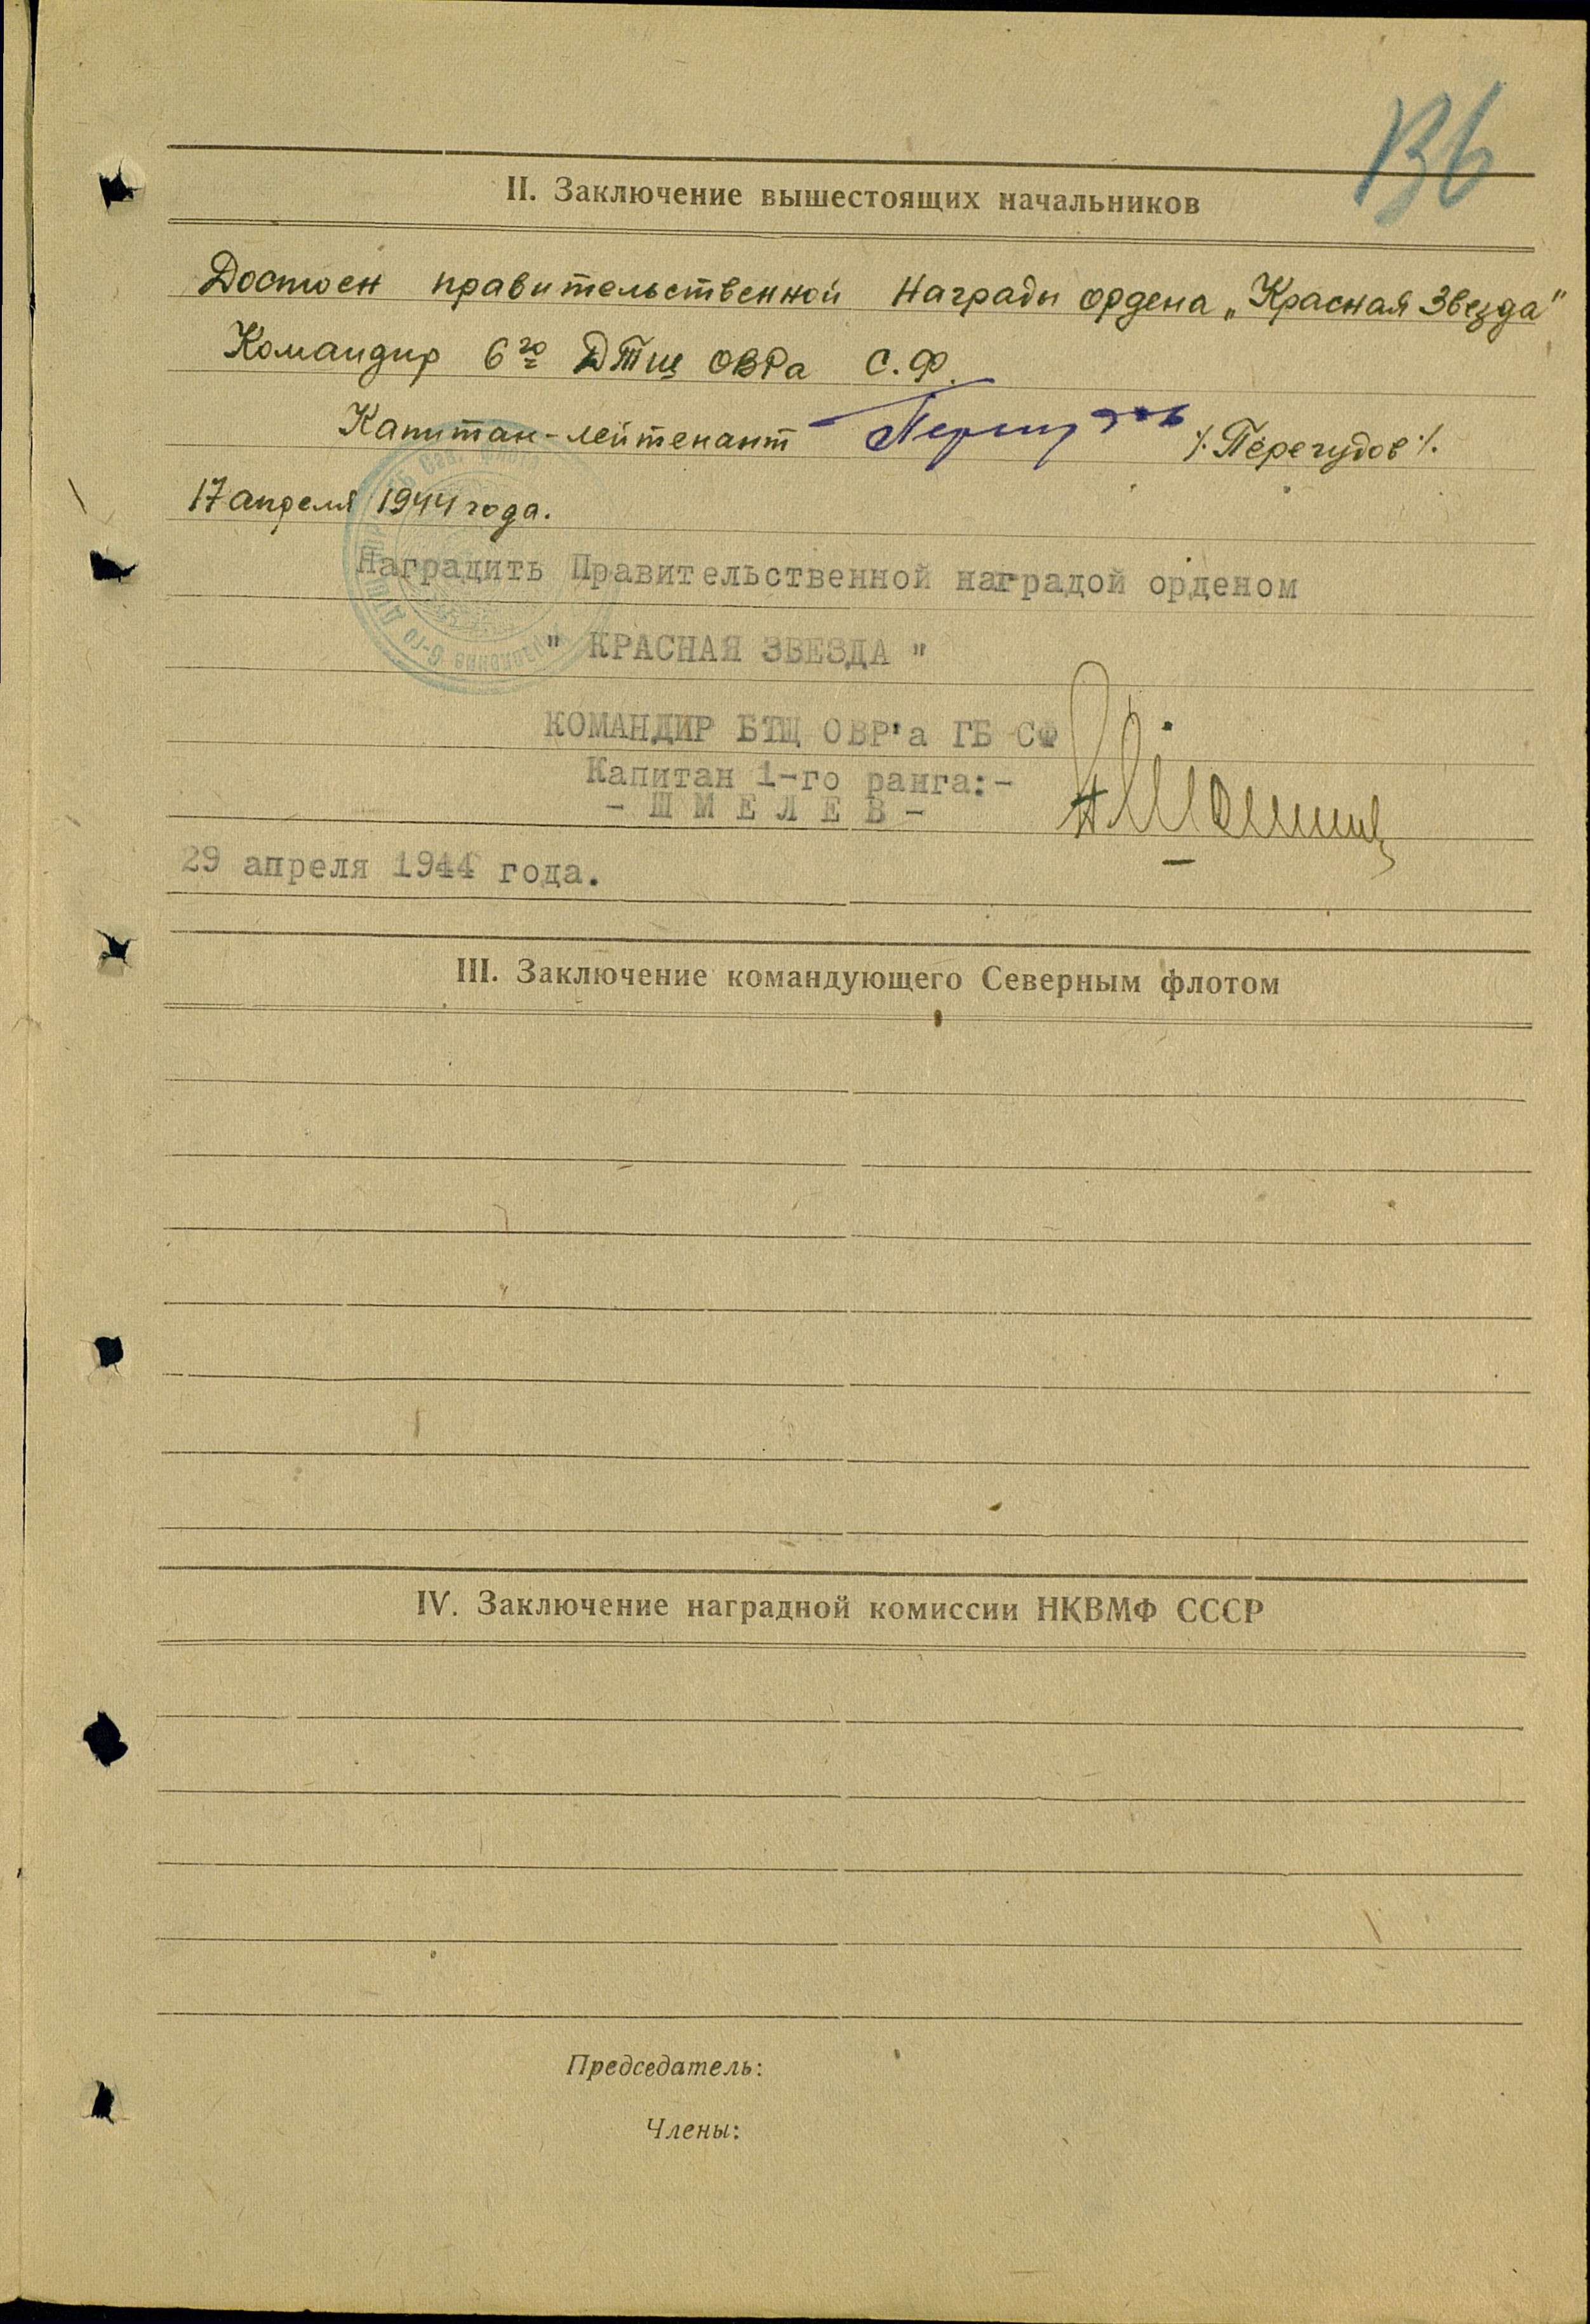 136
II. Заключение вышестоящих начальников
Достоен правительственной Награды ордена „Красная Звезда"
Командир 6го ДТщ ОВРа С.Ф.
Капитан-лейтенант ⁒ Перегудов ⁒
17 апреля 1944 года.
Наградить Правительственной наградой орденом
" КРАСНАЯ ЗВЕЗДА "
КОМАНДИР БТЩ ОВР'а ГБ СФ
Капитан 1-го ранга:-
- Ш М Е Л Е В -
29 апреля 1944 года.
III. Заключение командующего Северным флотом
IV. Заключение наградной комиссии НКВМФ СССР
Председатель:
Члены: